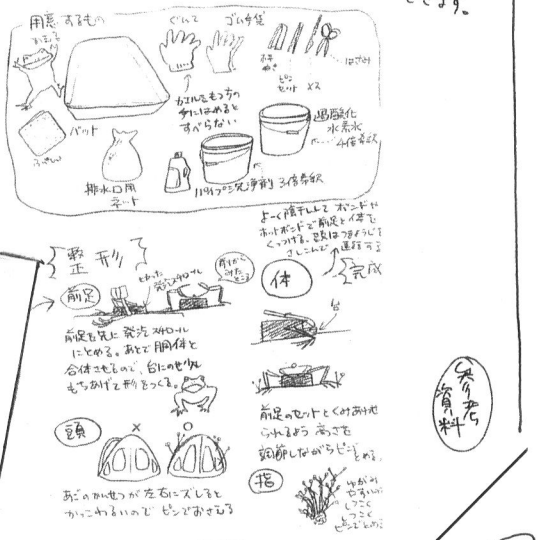 できます。
用意するもの
かえる
ぐんて
ゴム手袋
カエルをもつ方の
手にはめると
すべらない
ピン
セット ×2
はさみ
バット
排水口用
ネット
パイプ洗浄剤 3倍希釈
過酸化
水素水
4倍希釈
整形
前足
発泡スチロール
前からみたところ
前足を先に発泡スチロール
にとめる。あとで胴体と
合体させるので、台にのせ少し
もちあげて形をつくる。
頭
× ○
あごのかんせつが左右にズレると
かっこわるいのでピンでおさえる
よーく陰干しして ボンドや
ホットボンドで前足と体を
くっつける。頭はつまようじを
さしこんで
完成
体
台
前足のセットとくみあわせ
られるよう 高さを
調節しながらピンでとめる。
指
ゆがみ
やすいので
しつこく
しつこく
ピンでとめる
参考
資料